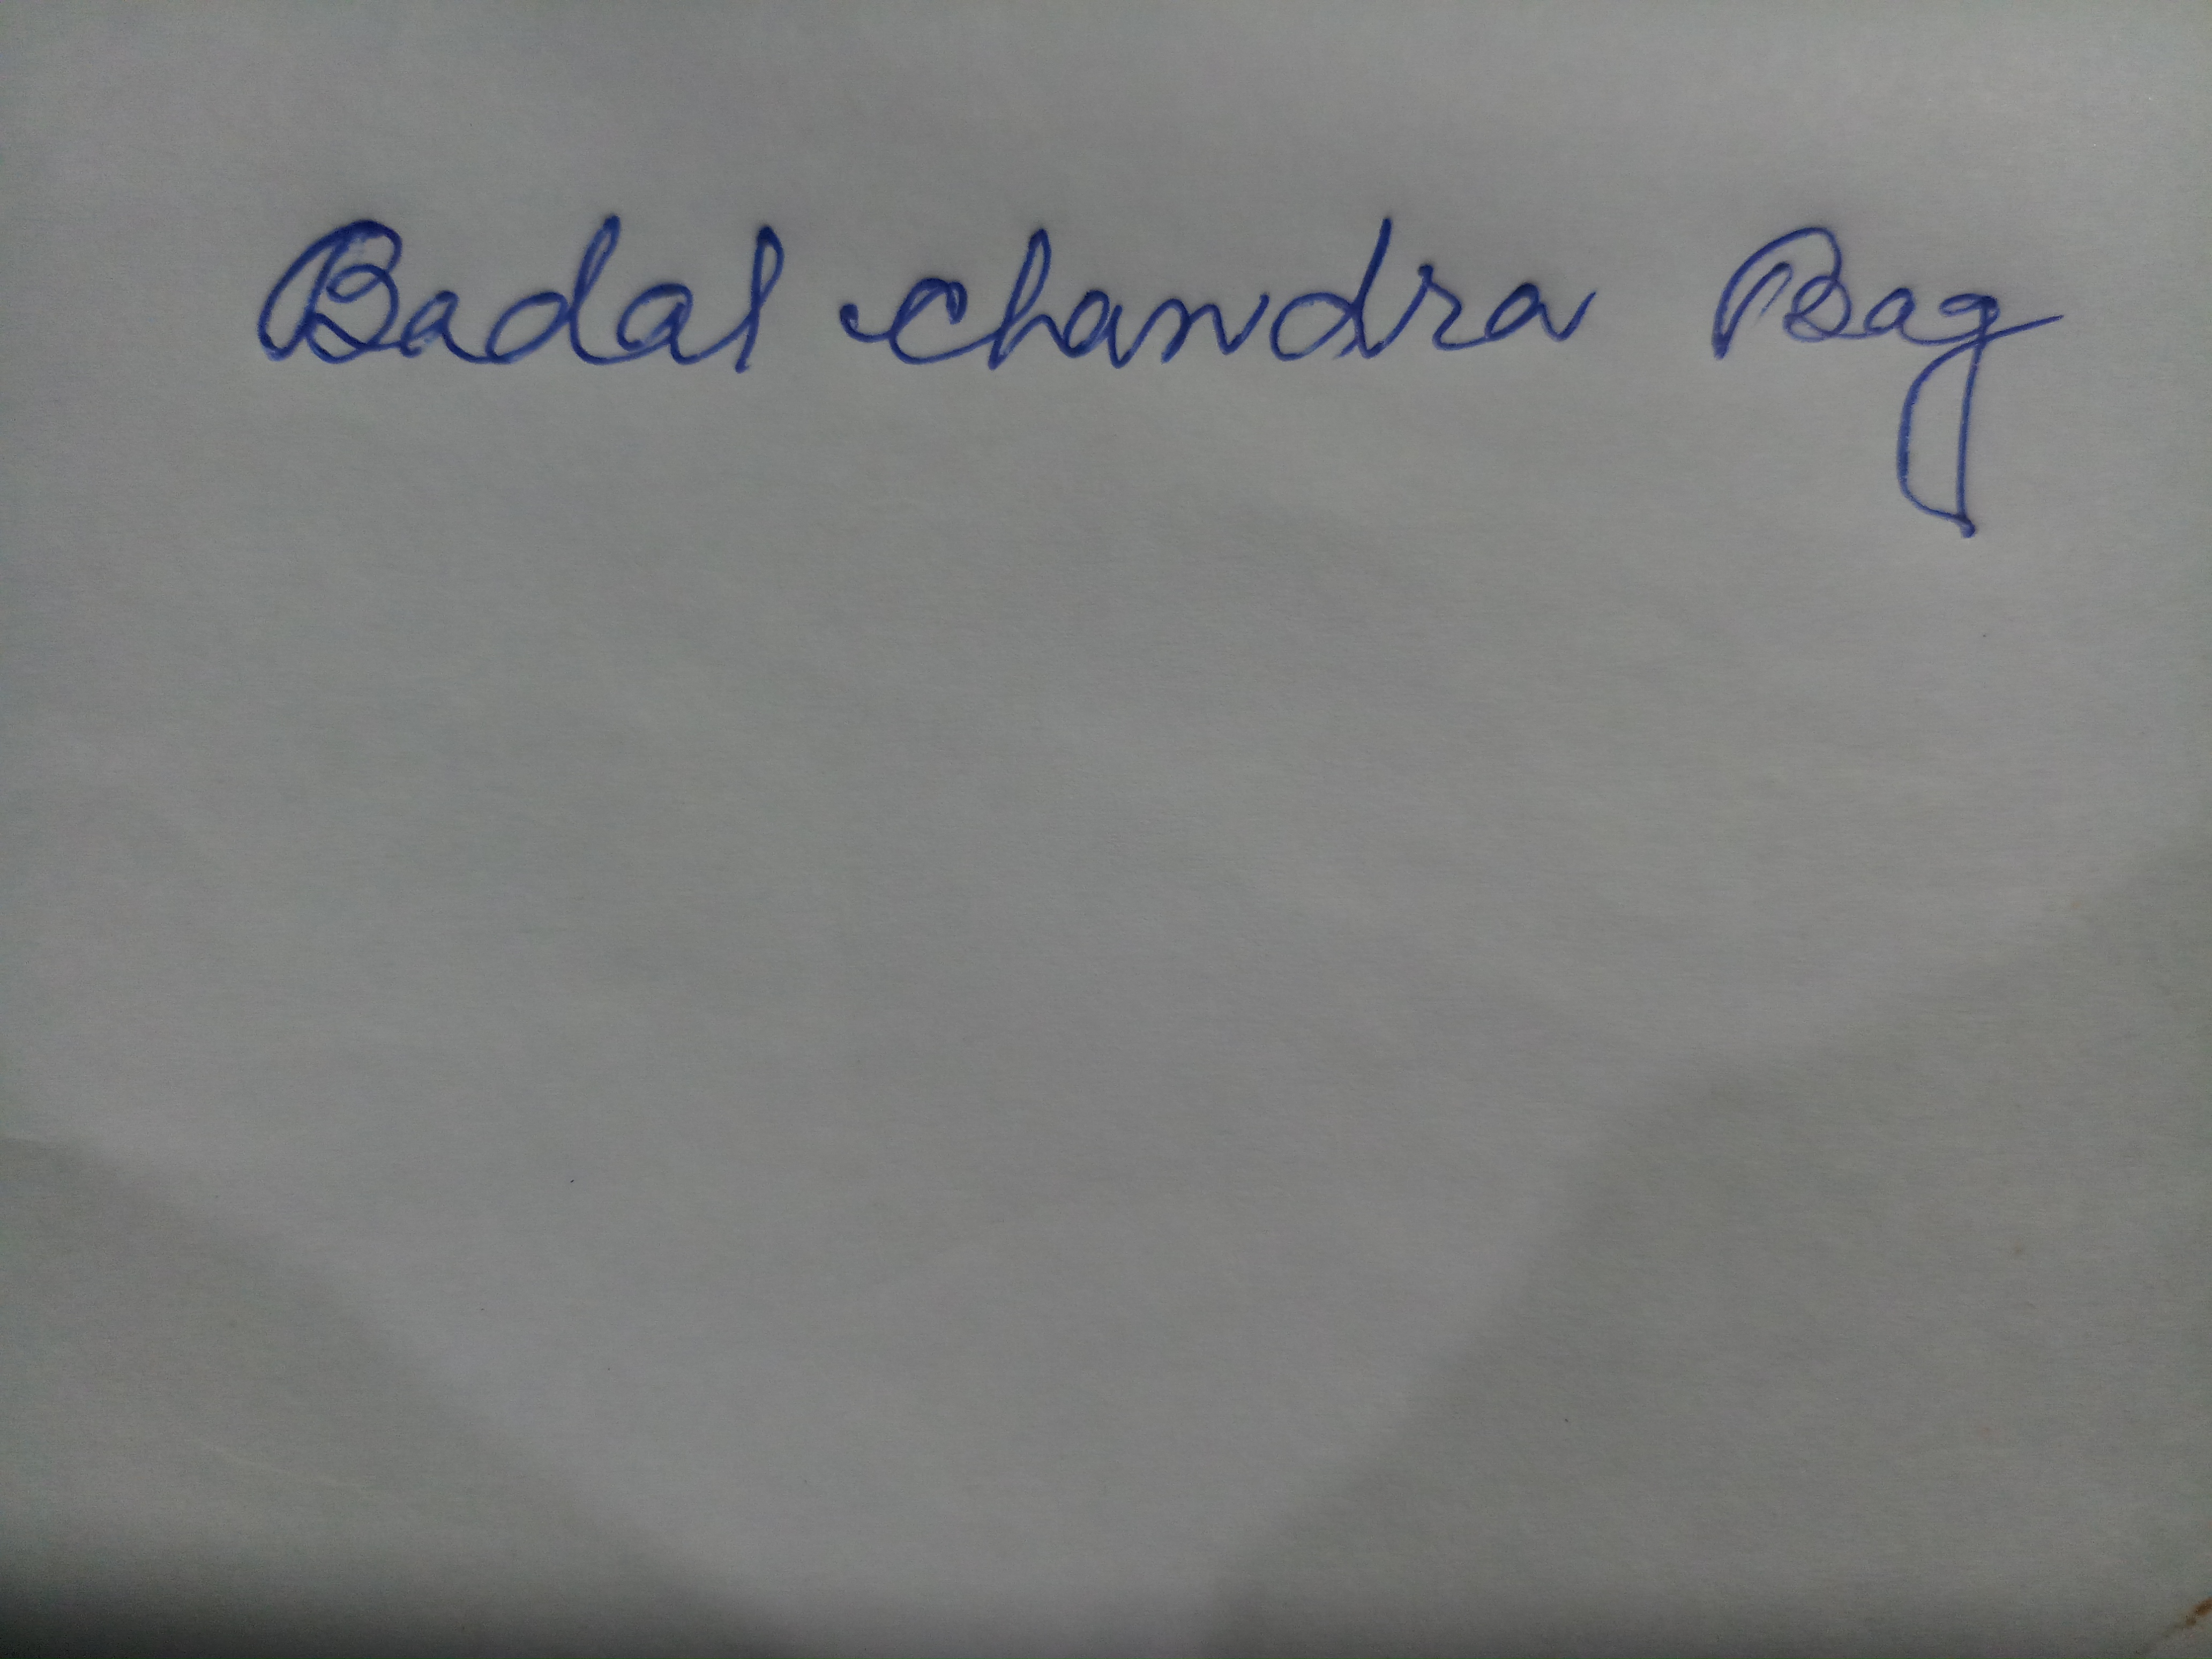 Badal chandra Bag